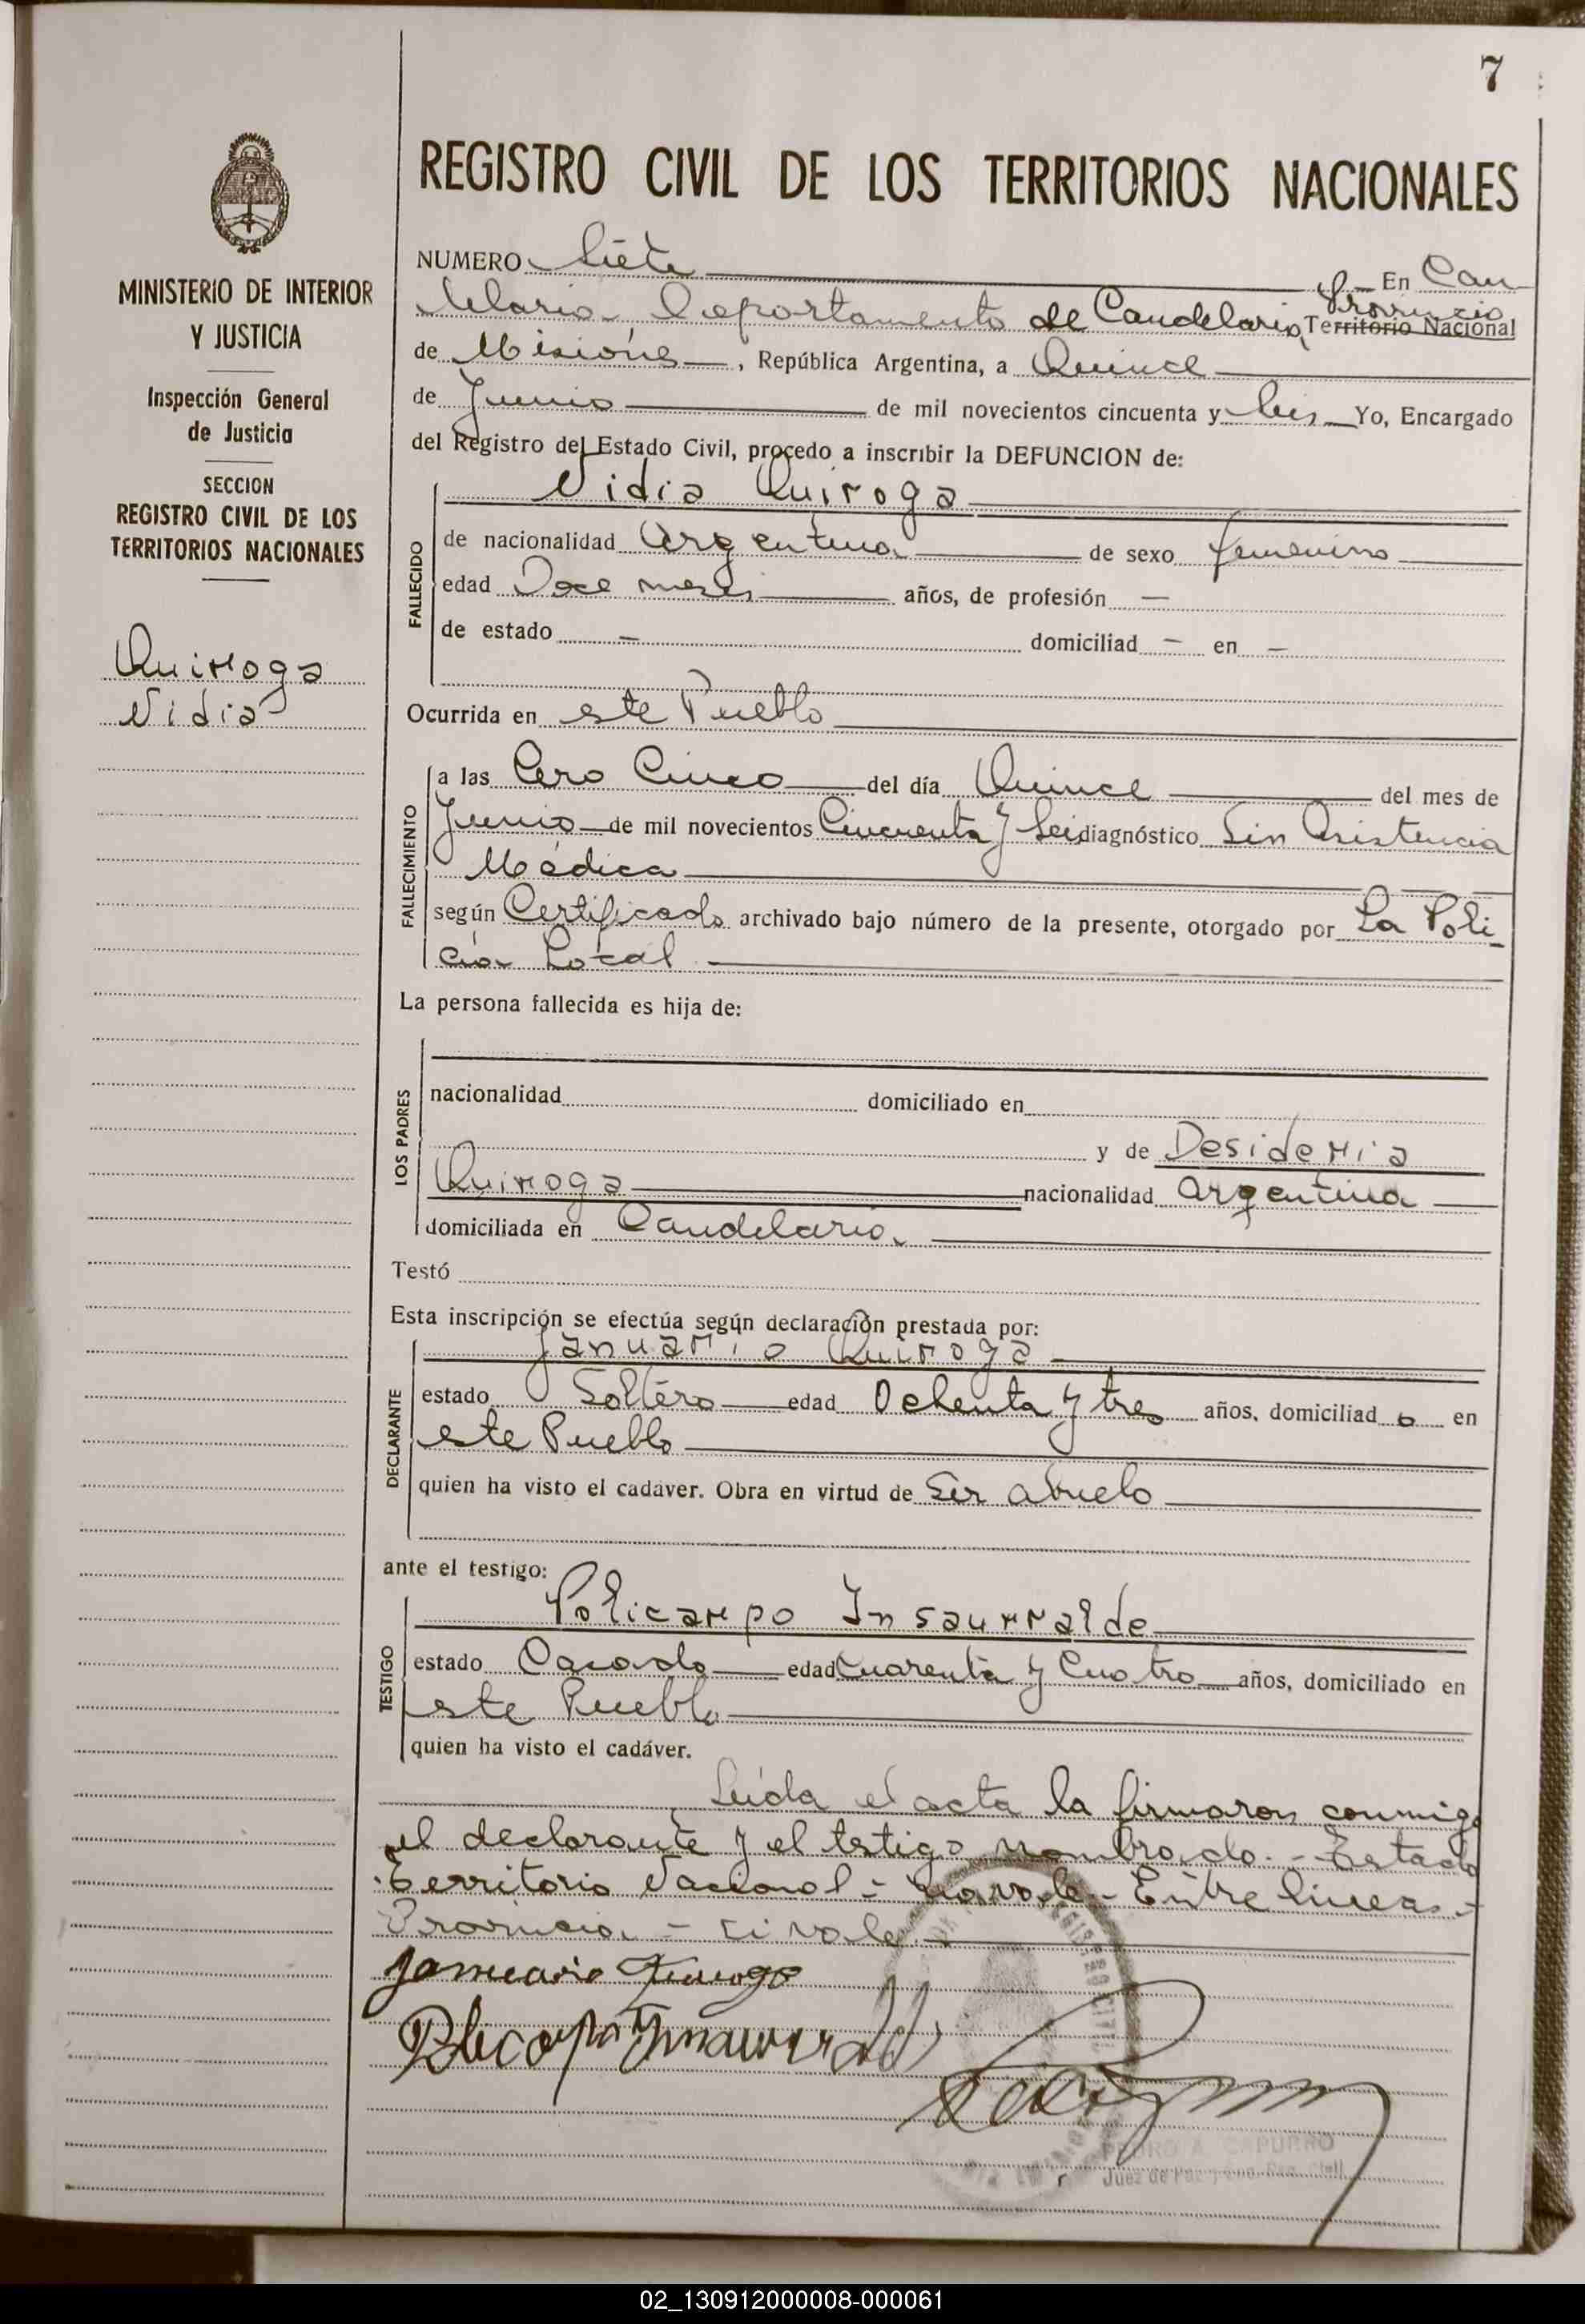 7
REGISTRO CIVIL DE LOS TERRITORIOS NACIONALES
MINISTERIO DE INTERIOR
Y JUSTICIA
Inspección General
de Justicia
SECCION
REGISTRO CIVIL DE LOS
TERRITORIOS NACIONALES
Quiroga
Nidia
NUMERO Siete En Can
Provincia
delaria, Departamento de Candelaria, Territorio Nacional
de Misiones, República Argentina, a Quince
de Junio de mil novecientos cincuenta y Seis Yo, Encargado
del Registro del Estado Civil, procedo a inscribir la DEFUNCION de:
Nidia Quiroga
FALLECIDO
de nacionalidad Argentina de sexo femenino
edad Doce meses años, de profesión —
de estado — domiciliad — en —
Ocurrida en este Pueblo
FALLECIMIENTO
a las Cero Cinco del día Quince del mes de
Junio de mil novecientos Cincuenta y Seis diagnóstico Sin Asistencia
Médica
según Certificado archivado bajo número de la presente, otorgado por La Poli
cía Local
La persona fallecida es hija de:
LOS PADRES
nacionalidad domiciliado en
y de Desideria
Quiroga nacionalidad Argentina
domiciliada en Candelaria
Testó
Esta inscripción se efectúa según declaración prestada por:
Januario Quiroga
DECLARANTE
estado Soltero edad Ochenta y tres años, domiciliad o en
este Pueblo
quien ha visto el cadáver. Obra en virtud de Ser abuelo
ante el testigo:
Policarpo Insaurralde
TESTIGO
estado Casado edad Cuarenta y Cuatro años, domiciliado en
este Pueblo
quien ha visto el cadáver.
Leída el acta la firmaron conmigo
el declarante y el testigo nombrado.- Testado
Territorio Nacional - no vale - Entre lineas -
Provincia - si vale
Januario Quiroga
Policarpo Insaurralde
PEDRO A. CAPURRO
02_130912000008-000061